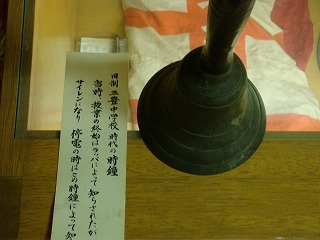 旧制三豊中学校時代の時鐘
当時、授業の終始はラッパによって知らされたが
サイレンになり 停電の時はこの時鐘によって知